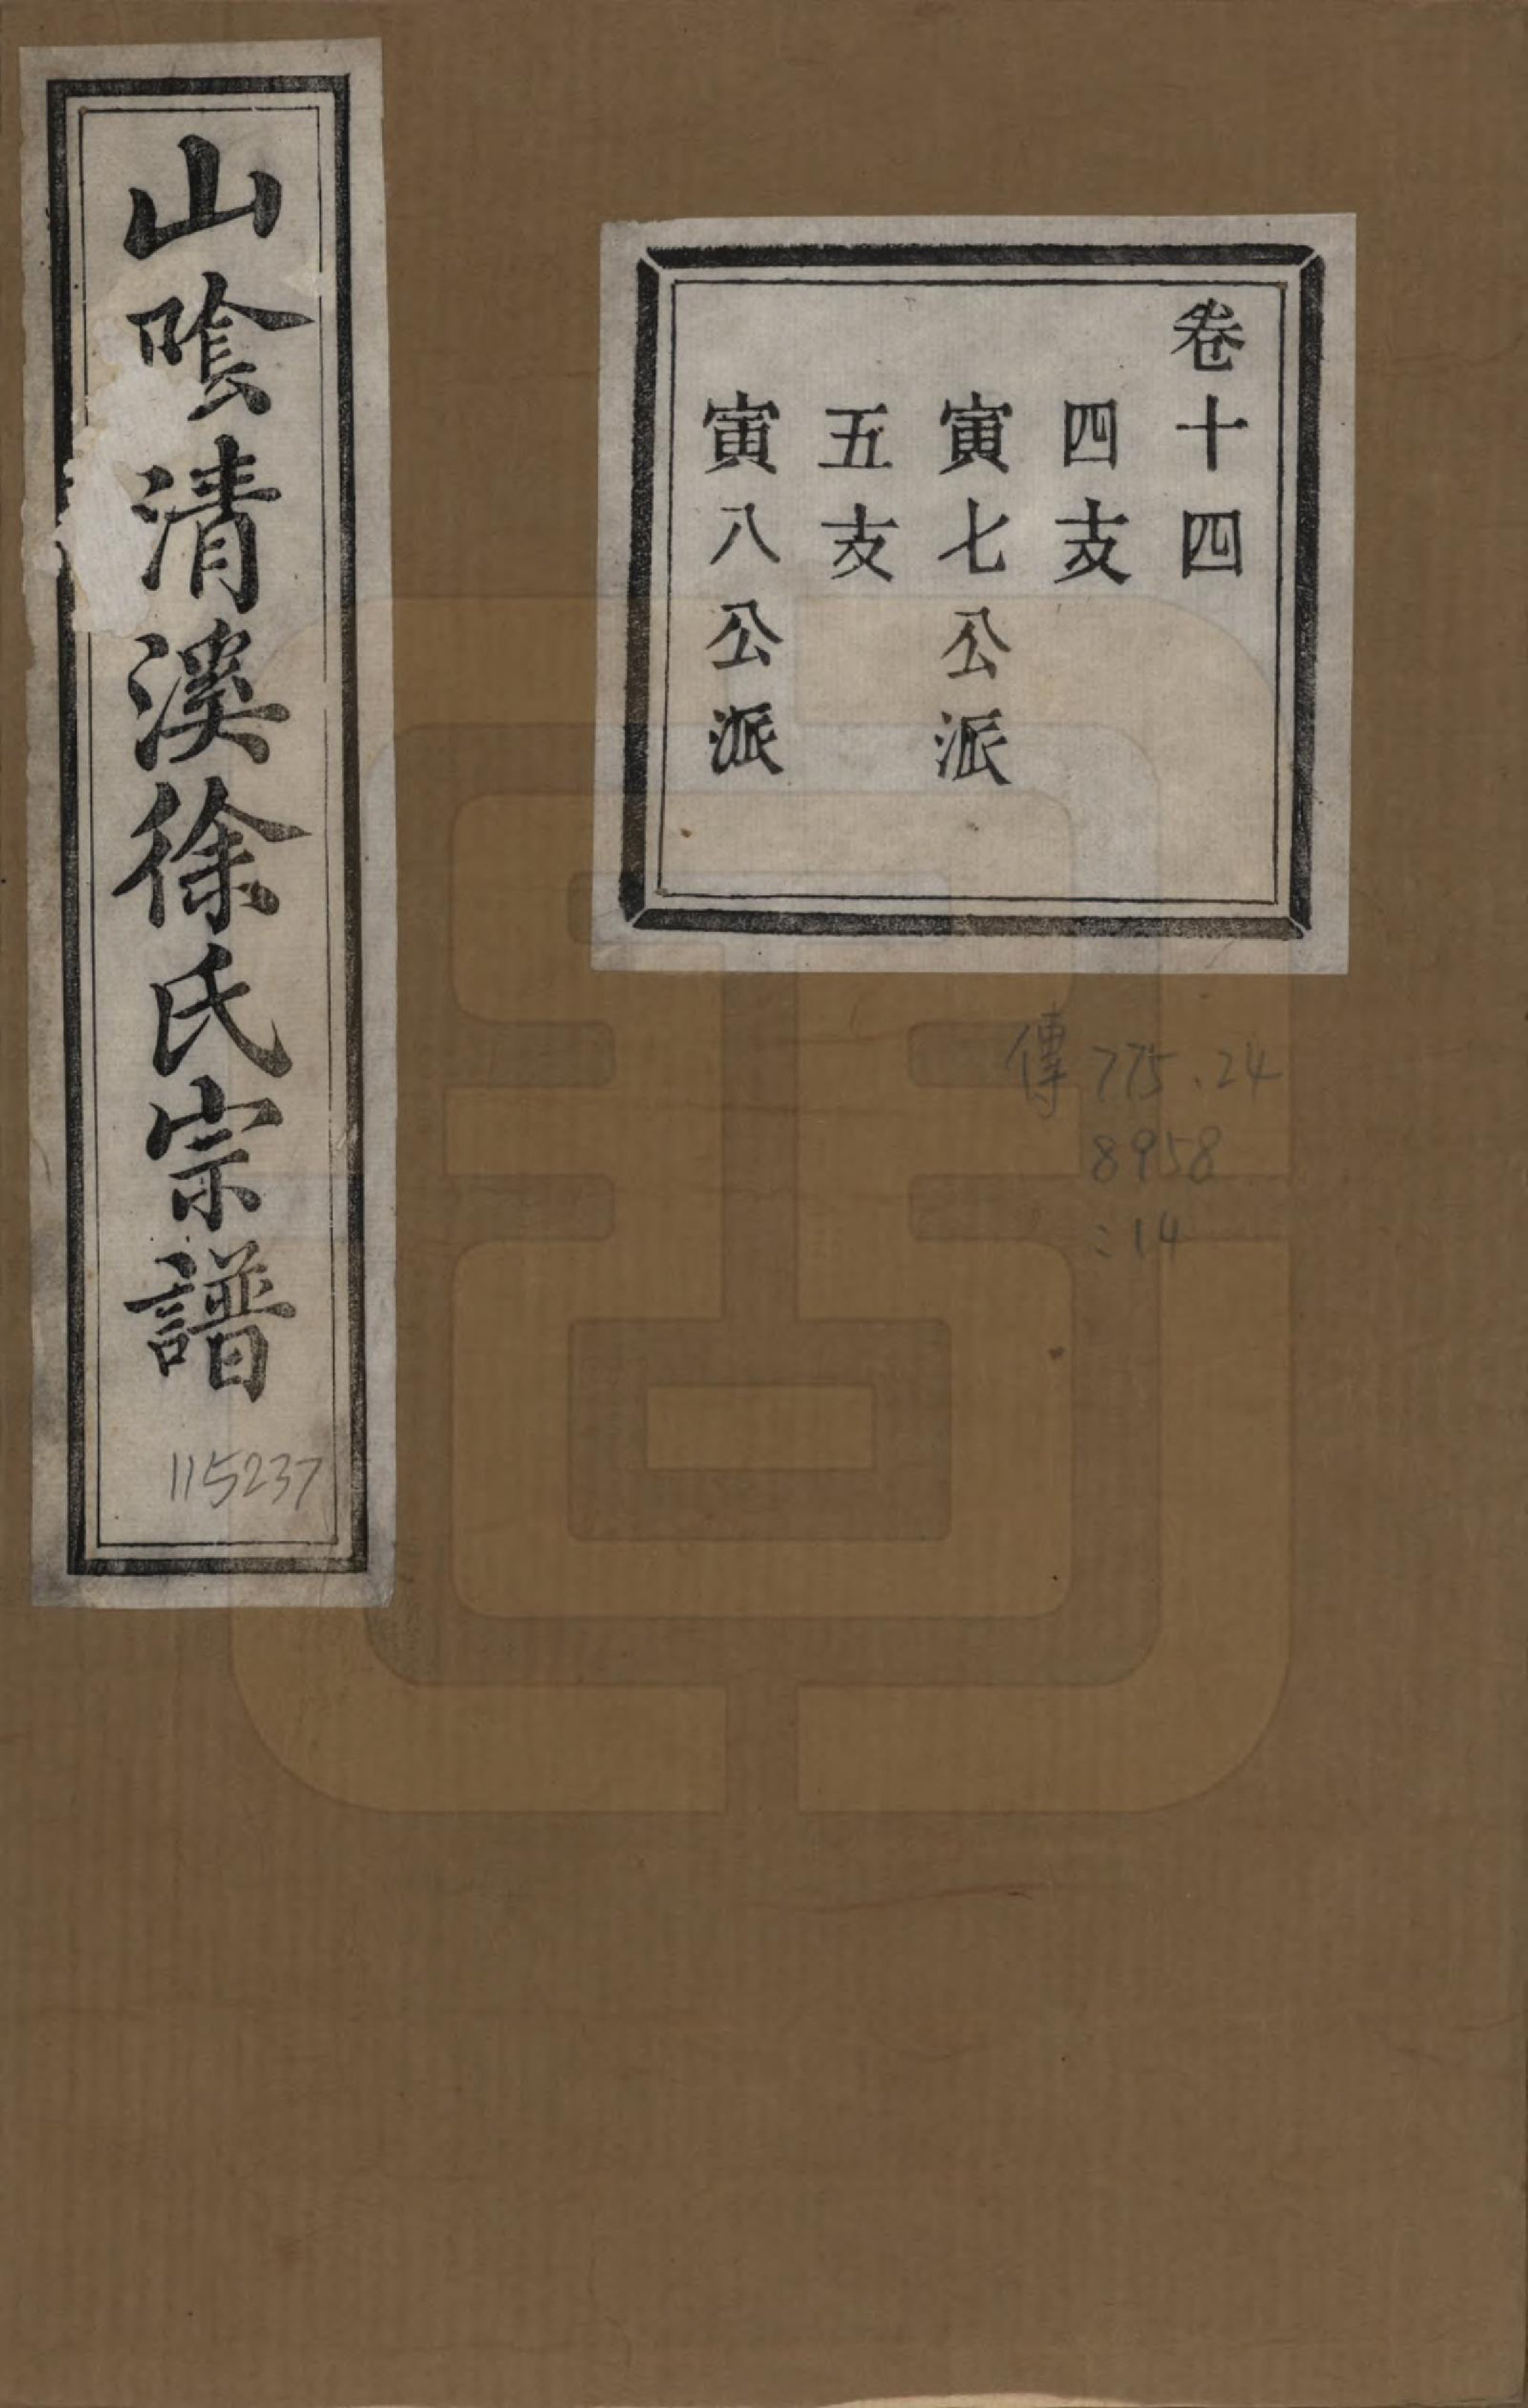 卷十四
四支
寅七公派
五支
寅八公派
山喰清溪徐氏宗譜
115237
傳 775.24
8958
:14